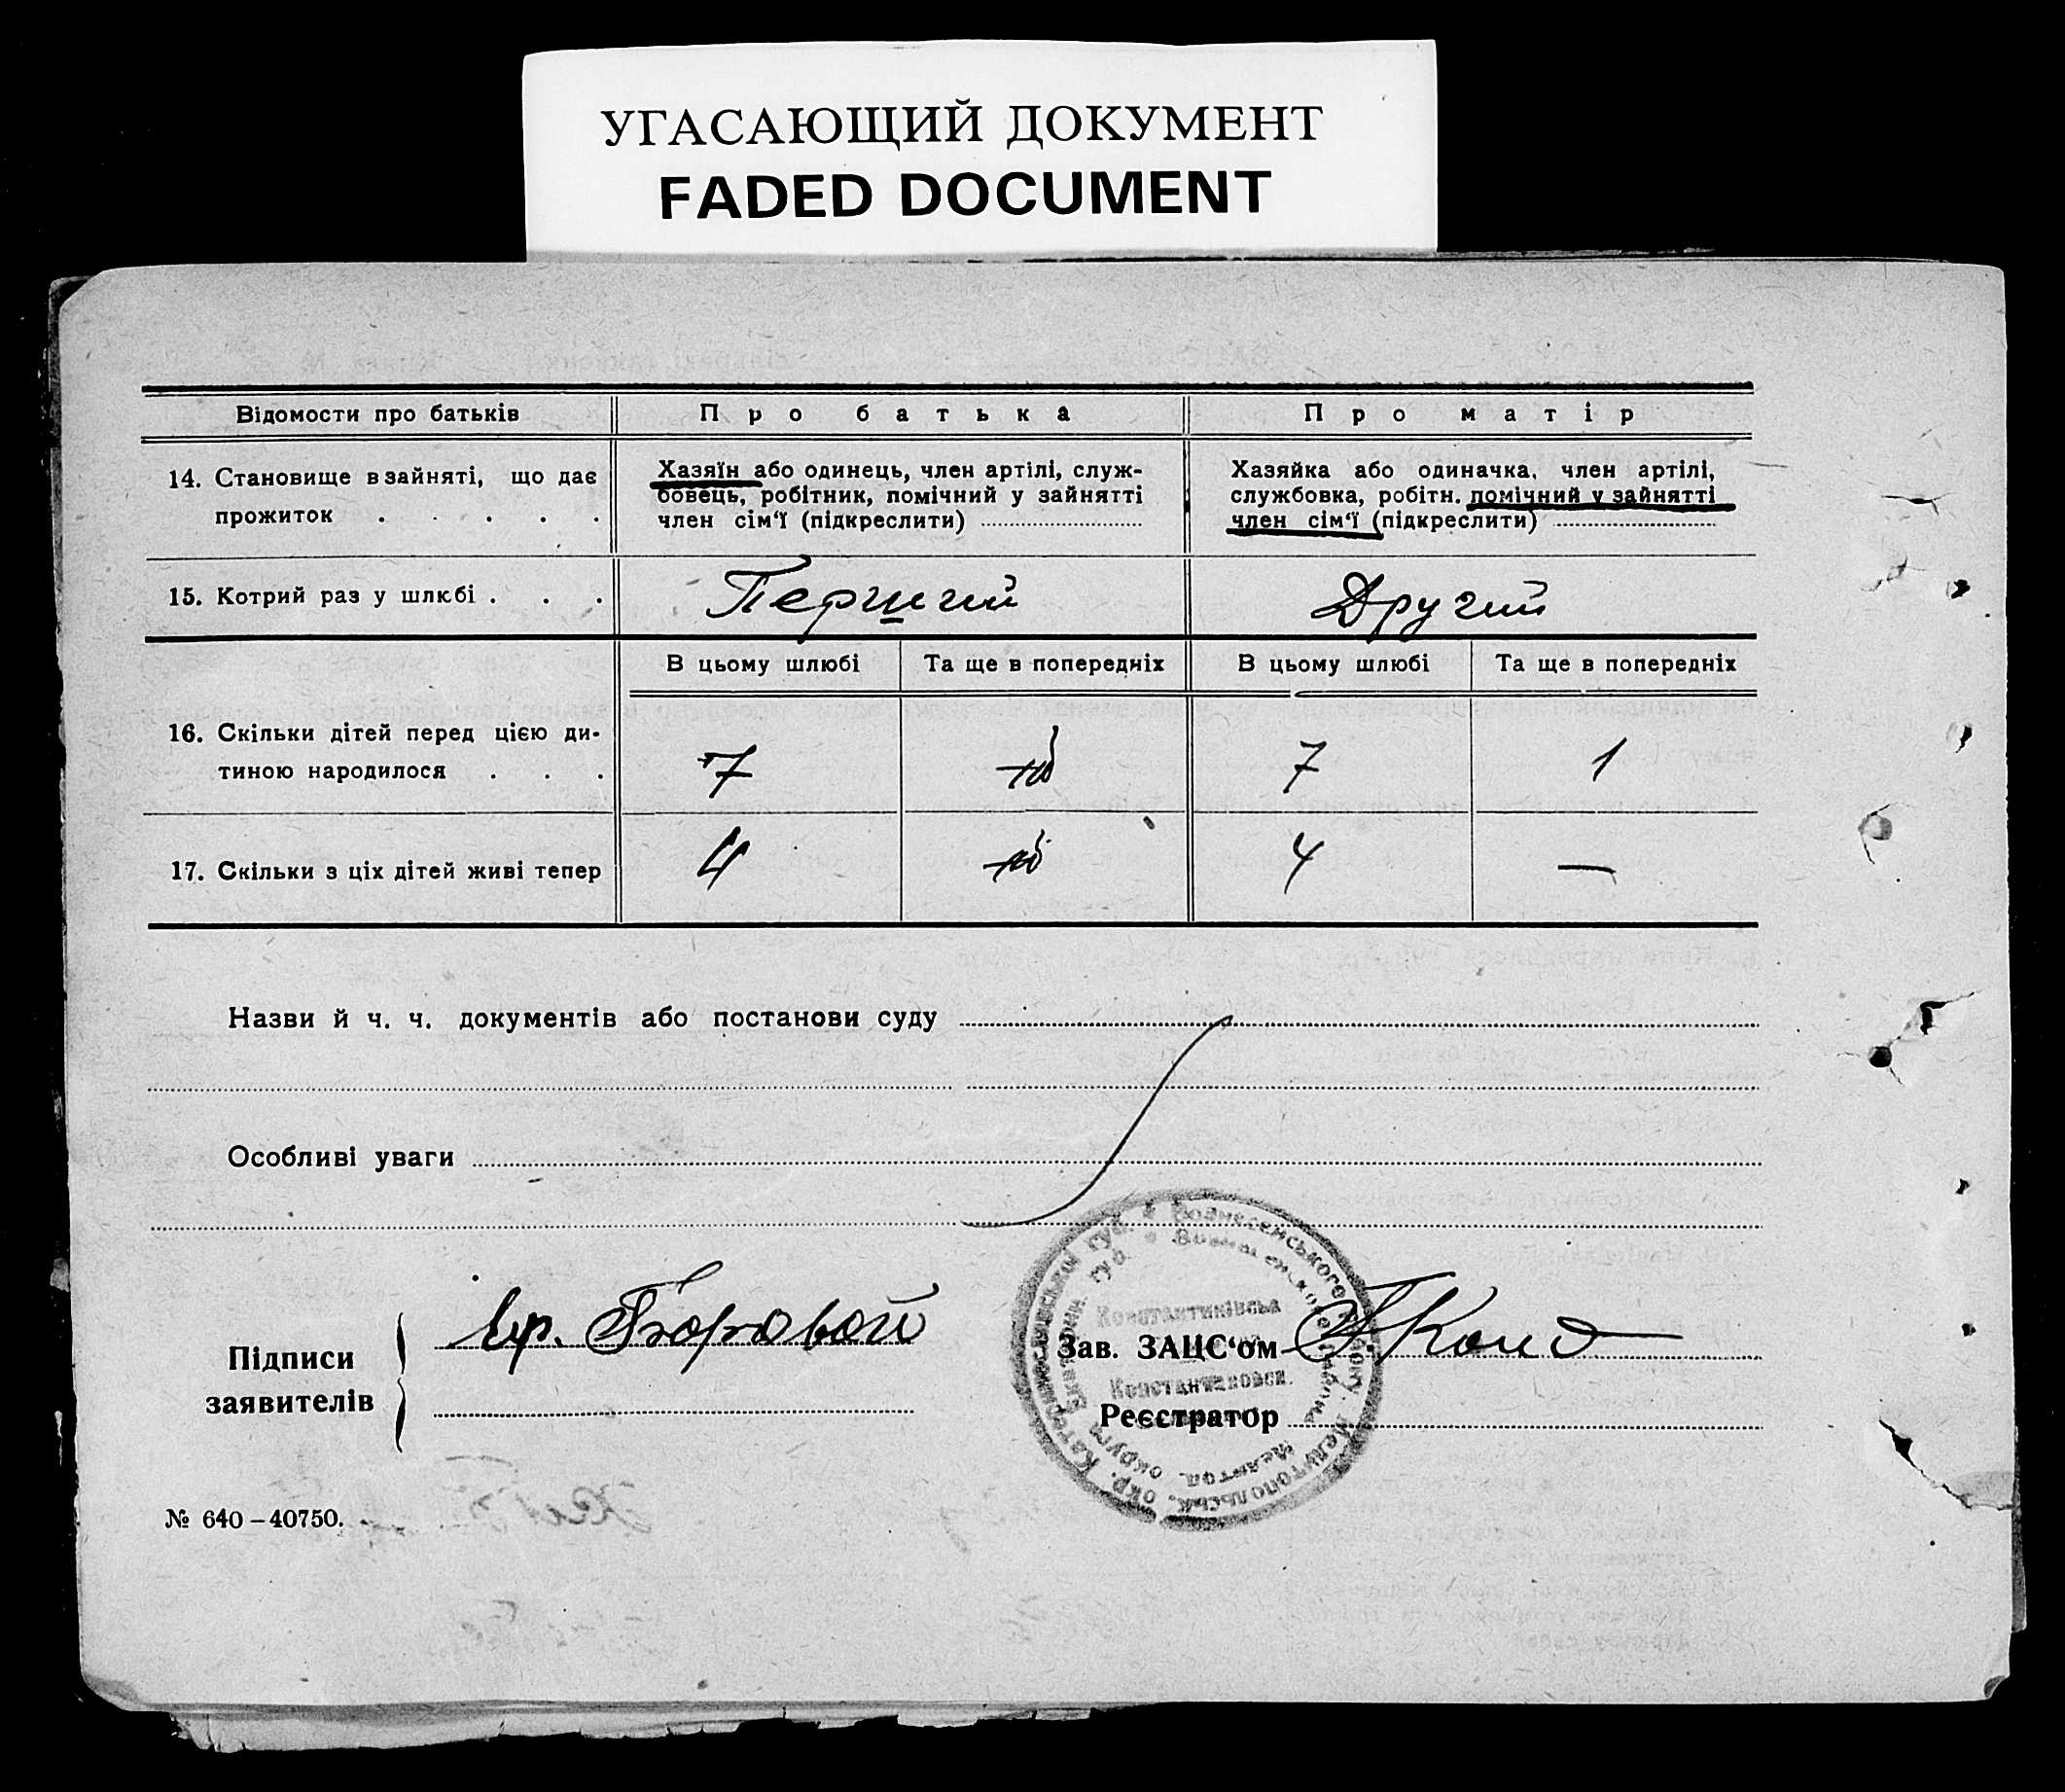 УГАСАЮЩИЙ ДОКУМЕНТ
FADED DOCUMENT
Відомости про батьків
Про батька
Про матір
14. Становище в зайняті, що дає
прожиток . . . . .
Хазяїн або одинець, член артілі, служ-
бовець, робітник, помічний у зайнятті
член сім‘ї (підкреслити)
Хазяйка або одиначка, член артілі,
службовка, робітн. помічний у зайнятті
член сім‘ї (підкреслити)
15. Котрий раз у шлюбі . . .
Перший
Другий
В цьому шлюбі
Та ще в попередніх
В цьому шлюбі
Та ще в попередніх
16. Скільки дітей перед цією ди-
тиною народилося . . .
7
7
1
17. Скільки з ціх дітей живі тепер
4
4
—
Назви й ч. ч. документів або постанови суду
Особливі уваги
Підписи
заявителів
Боровой
Зав. ЗАЦС‘ом
Реєстратор
Катеринославської губ. Вознесенського району Мелітопольськ. окр.
Константинівська
Константиновск.
№ 640–40750.